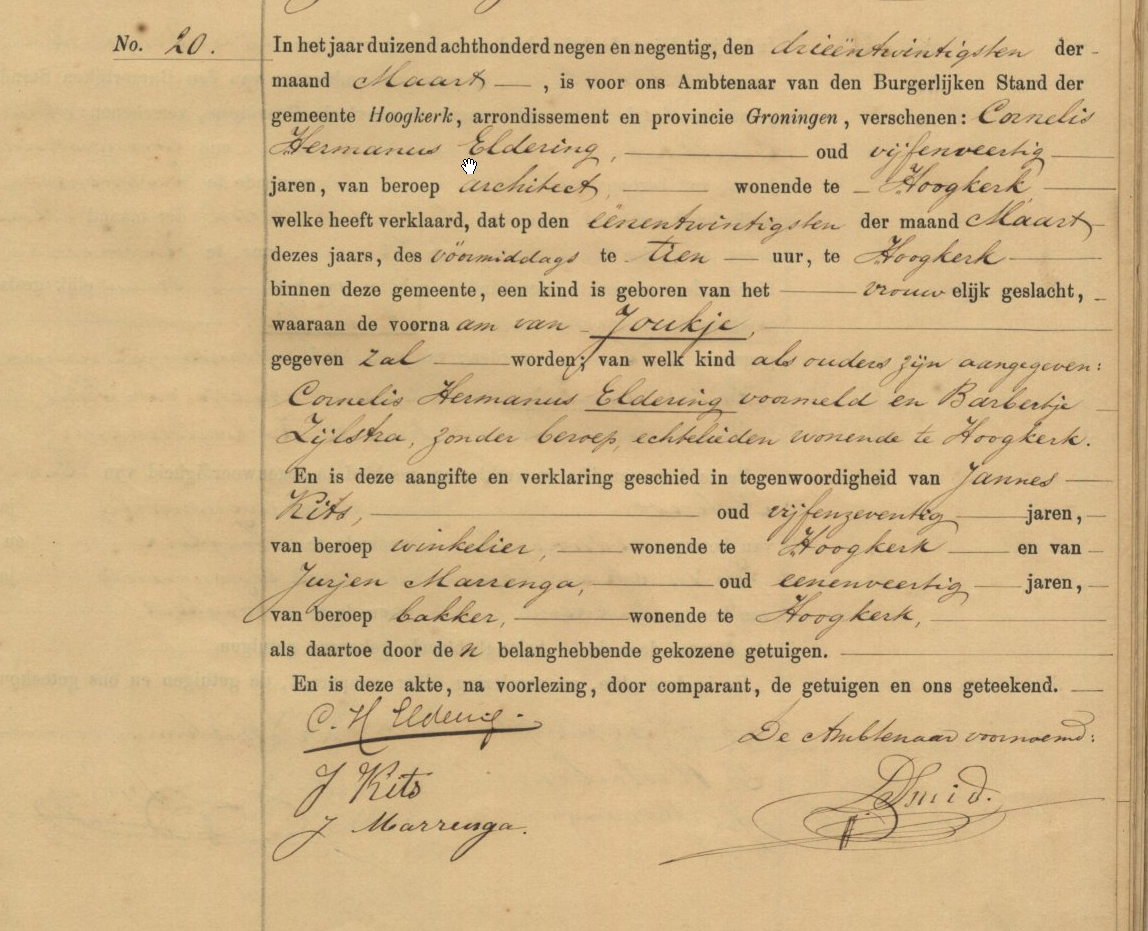 No. 20.
In het jaar duizend achthonderd negen en negentig, den drieëntwintigsten der
maand Maart, is voor ons Ambtenaar van den Burgerlijken Stand der
gemeente Hoogkerk, arrondissement en provincie Groningen, verschenen: Cornelis
Hermanus Eldering, oud vijfenveertig
jaren, van beroep architect, wonende te Hoogkerk
welke heeft verklaard, dat op den eenentwintigsten der maand Maart
dezes jaars, des voormiddags te tien uur, te Hoogkerk
binnen deze gemeente, een kind is geboren van het vrouwelijk geslacht,
waaraan de voornaam van Joukje,
gegeven zal worden; van welk kind als ouders zijn aangegeven:
Cornelis Hermanus Eldering voormeld en Barbertje
Zijlstra, zonder beroep, echtelieden wonende te Hoogkerk.
En is deze aangifte en verklaring geschied in tegenwoordigheid van Jannes
Kits, oud vijfenzeventig jaren,
van beroep winkelier, wonende te Hoogkerk en van
Jurjen Marrenga, oud eenenveertig jaren,
van beroep bakker, wonende te Hoogkerk,
als daartoe door den belanghebbende gekozene getuigen.
En is deze akte, na voorlezing, door comparant, de getuigen en ons geteekend.
C. H Eldering.
De Ambtenaar voornoemd:
J Kits
J Marrenga.